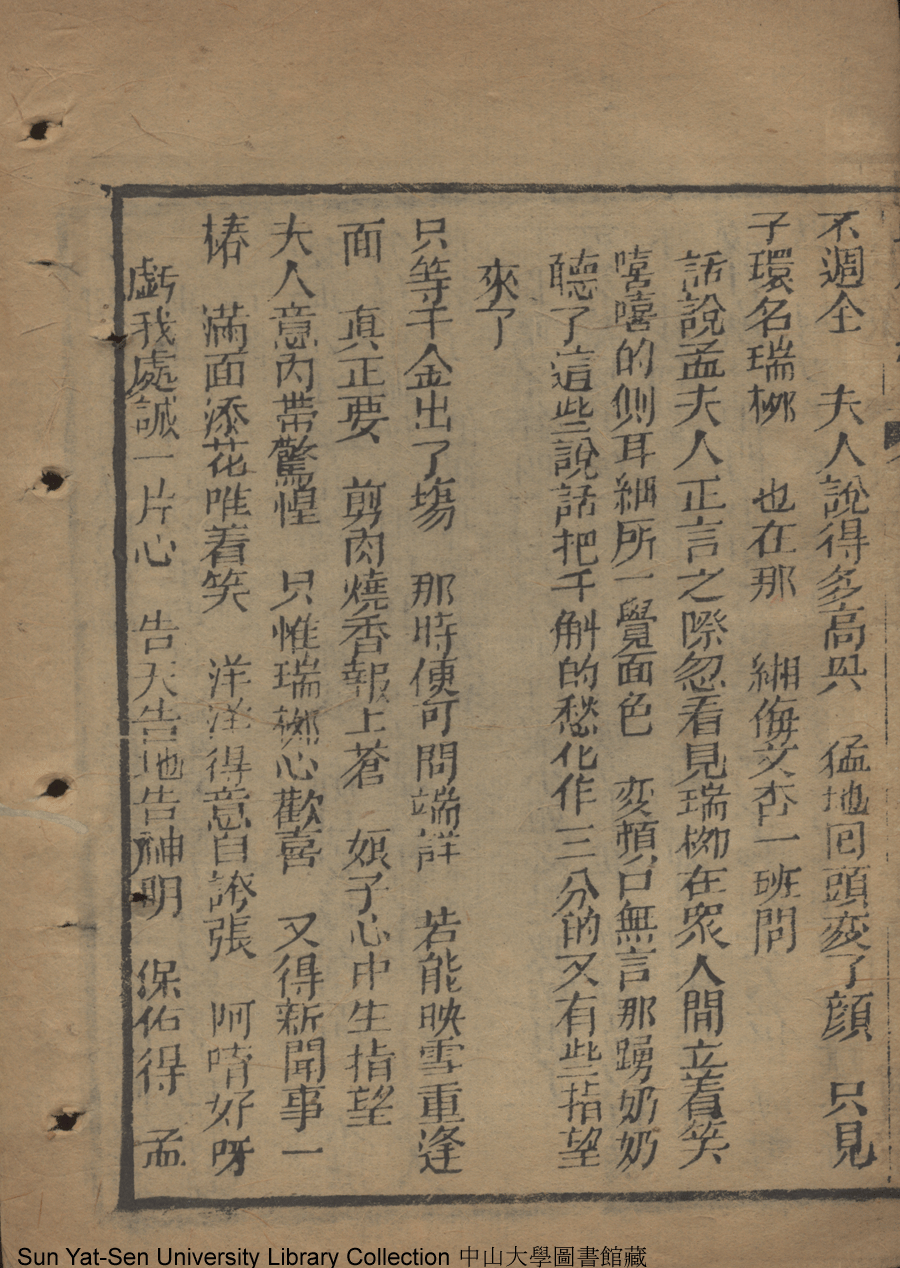 不週全　夫人說得多高興　猛地回頭変了顔　只見
子環名瑞柳　也在那　緗侮文杏一班問
話說孟夫人正言之際忽看見瑞柳在衆人間立着笑
嘻嘻的側耳細所一覺面色　変頓口無言那踴奶奶
聽了這些說話把千斛的愁化作三分的又有些指望
來了
只等千金出了塲　那時便可問端詳　若能映雪重逢
面　真正要　剪肉燒香報上蒼　娘子心中生指望
夫人意内帯驚惶　只惟瑞柳心歡喜　又得新聞事一
樁　滿面添花唯着笑　洋洋得意自誇張　阿唷好呀
虧我處誠一片心　告天告地告神明　保佑得　孟
Sun Yat-Sen University Library Collection 中山大學圖書館藏